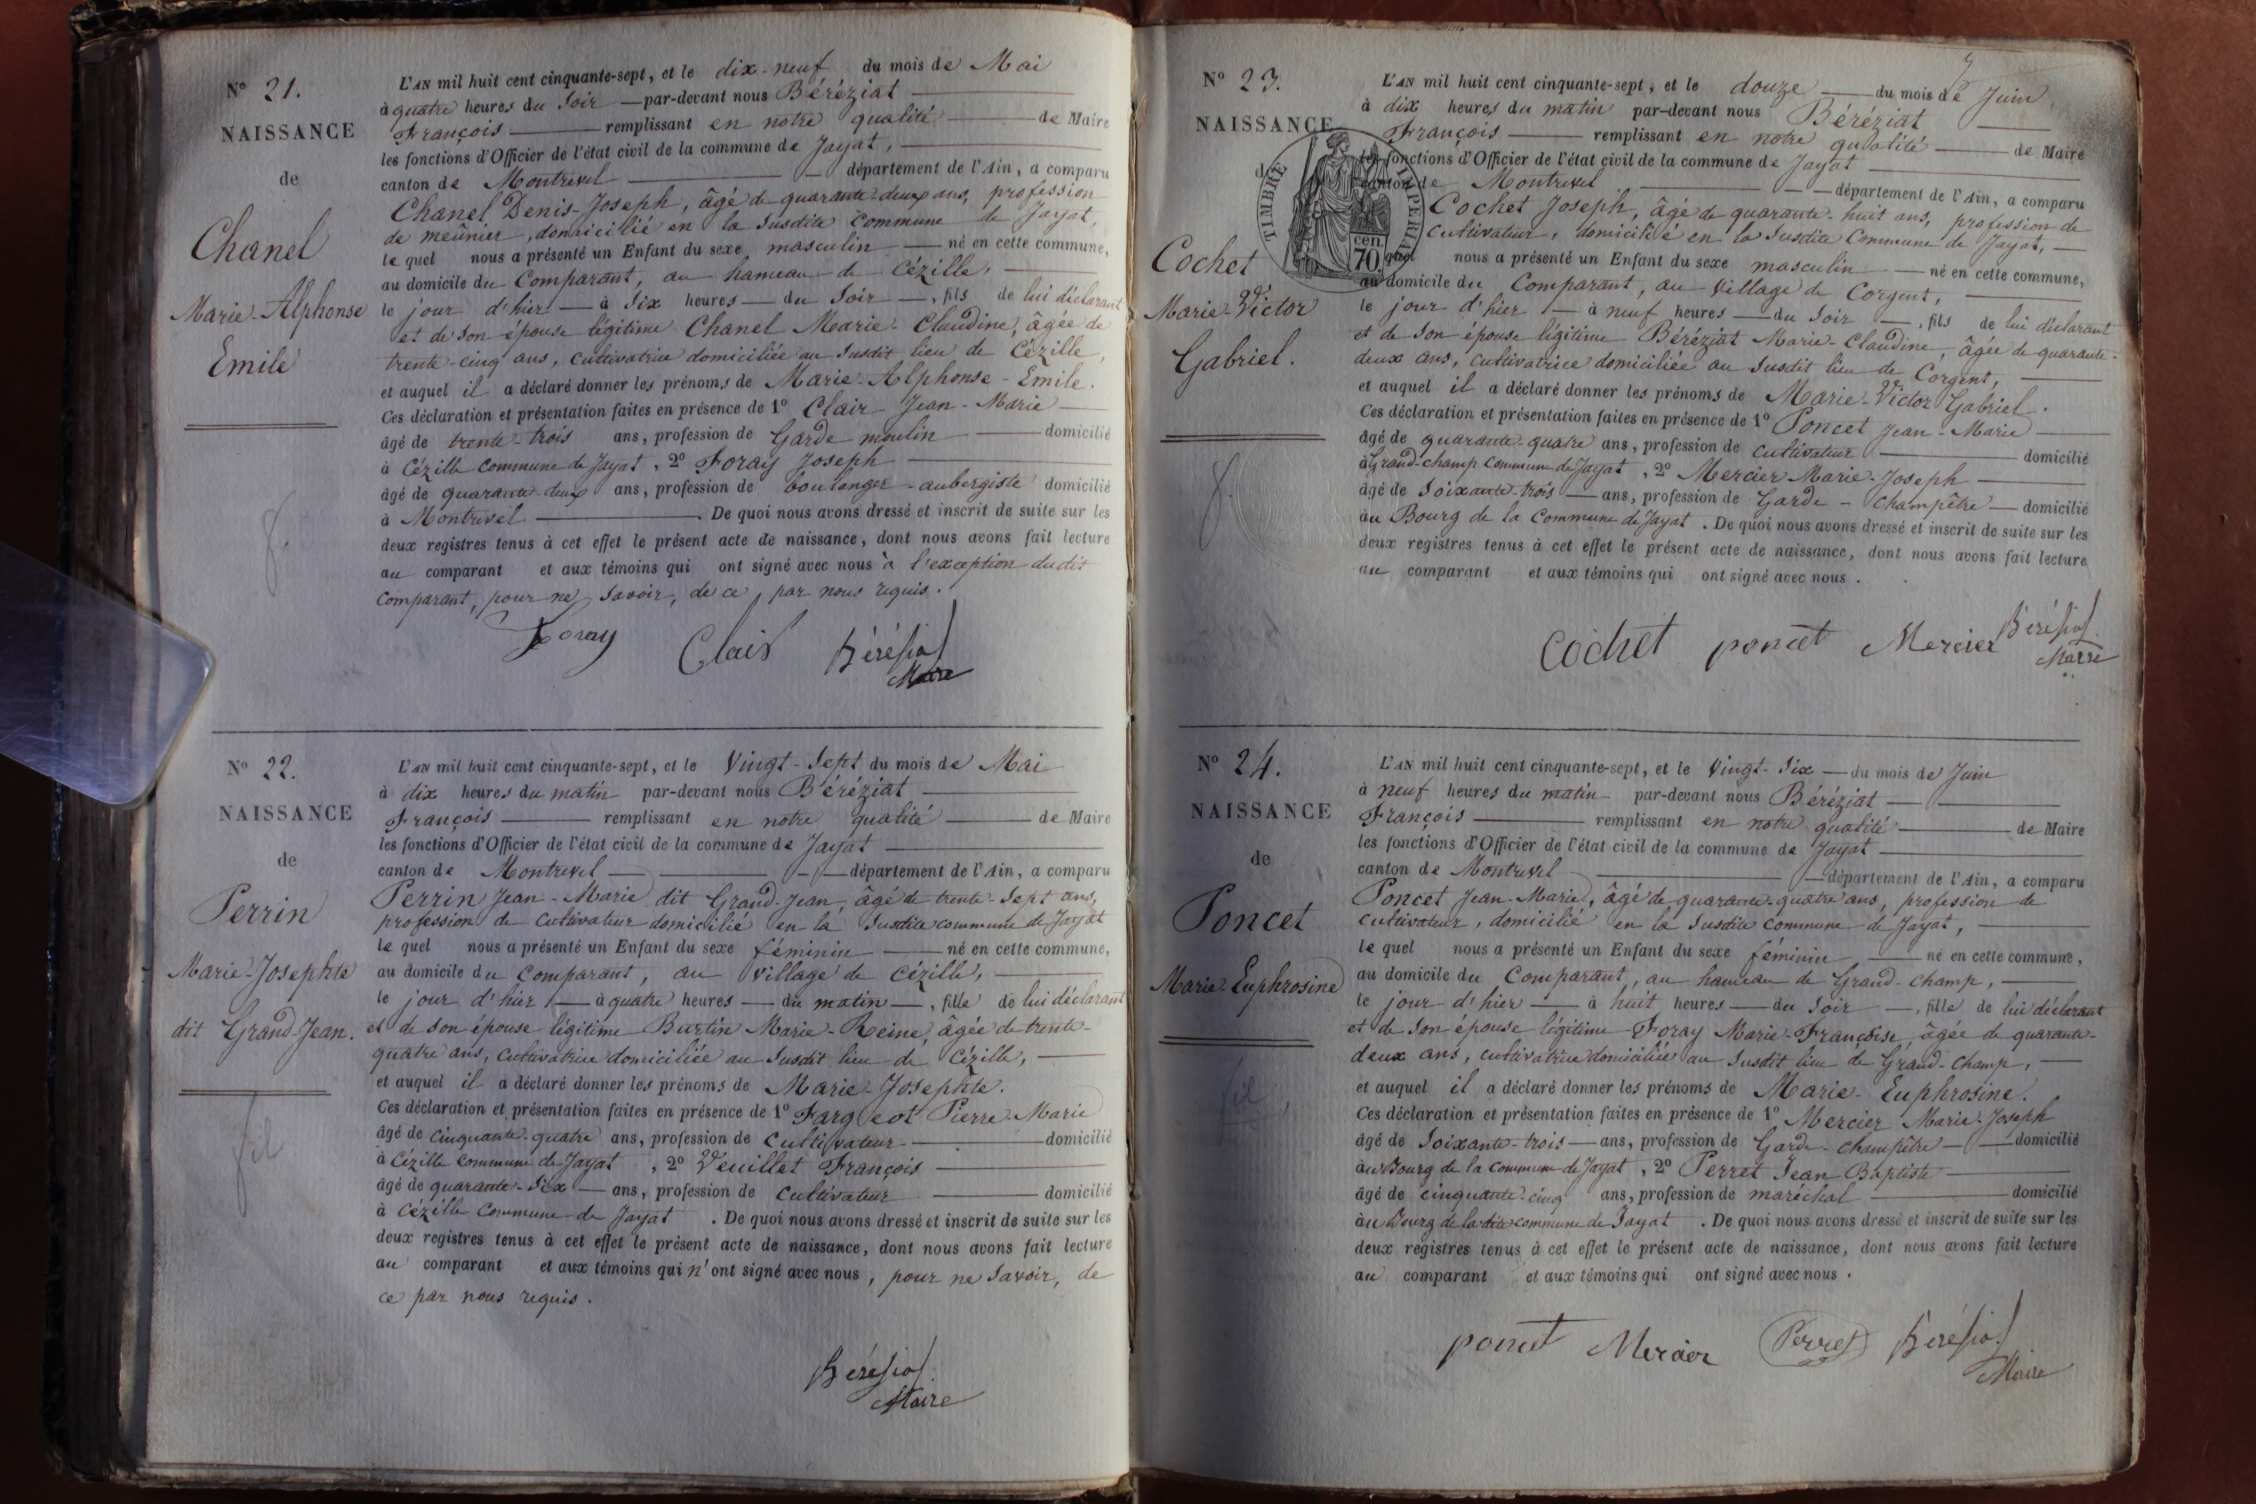 Nº 21.
NAISSANCE
de
Chanel
Marie-Alphonse
Emile
L'AN mil huit cent cinquante-sept, et le dix-neuf du mois de Mai
à quatre heures du soir — par-devant nous Béréziat
François — remplissant en notre qualité — de Maire
les fonctions d'Officier de l'état civil de la commune de Jayat,
canton de Montrevel — département de l'Ain, a comparu
Chanel Denis-Joseph, âgé de quarante-deux ans, profession
de meûnier, domicilié en la susdite commune de Jayat,
le quel nous a présenté un Enfant du sexe masculin — né en cette commune,
au domicile du Comparant, au hameau de Cézille,
le jour d'hier — à six heures — du soir —, fils de lui déclarant
et de son épouse légitime Chanel Marie-Claudine, âgée de
trente-cinq ans, cultivatrice domiciliée au susdit lieu de Cézille,
et auquel il a déclaré donner les prénoms de Marie-Alphonse-Emile.
Ces déclaration et présentation faites en présence de 1º Clair Jean-Marie
âgé de trente-trois ans, profession de Garde moulin — domicilié
à Cézille commune de Jayat, 2º Foray Joseph
âgé de quarante-deux ans, profession de boulanger-aubergiste domicilié
à Montrevel — De quoi nous avons dressé et inscrit de suite sur les
deux registres tenus à cet effet le présent acte de naissance, dont nous avons fait lecture
au comparant et aux témoins qui ont signé avec nous à l'exception dudit
comparant, pour ne savoir, de ce par nous requis.
Foray Clair Béréziat
Maire
Nº 22.
NAISSANCE
de
Perrin
Marie-Josephte
dit Grand-Jean.
L'AN mil huit cent cinquante-sept, et le vingt-sept du mois de Mai
à dix heures du matin par-devant nous Béréziat
François — remplissant en notre qualité — de Maire
les fonctions d'Officier de l'état civil de la commune de Jayat
canton de Montrevel — département de l'Ain, a comparu
Perrin Jean-Marie dit Grand-Jean, âgé de trente-sept ans,
profession de cultivateur domicilié en la susdite commune de Jayat
le quel nous a présenté un Enfant du sexe féminin — né en cette commune,
au domicile du comparant, au village de Cézille,
le jour d'hier — à quatre heures — du matin —, fille de lui déclarant
et de son épouse légitime Burtin Marie-Reine, âgée de trente-
quatre ans, cultivatrice domiciliée au susdit lieu de Cézille,
et auquel il a déclaré donner les prénoms de Marie-Josephte.
Ces déclaration et présentation faites en présence de 1º Fargeot Pierre-Marie
âgé de cinquante-quatre ans, profession de cultivateur — domicilié
à Cézille commune de Jayat, 2º Veuillet François
âgé de quarante-six — ans, profession de cultivateur — domicilié
à Cézille commune de Jayat. De quoi nous avons dressé et inscrit de suite sur les
deux registres tenus à cet effet le présent acte de naissance, dont nous avons fait lecture
au comparant et aux témoins qui n'ont signé avec nous, pour ne savoir, de
ce par nous requis.
Béréziat
Maire
Nº 23.
NAISSANCE
de
Cochet
Marie-Victor
Gabriel.
TIMBRE IMPERIAL
70 cen.
L'AN mil huit cent cinquante-sept, et le douze — du mois de Juin
à dix heures du matin par-devant nous Béréziat
François — remplissant en notre qualité — de Maire
les fonctions d'Officier de l'état civil de la commune de Jayat
canton de Montrevel — département de l'Ain, a comparu
Cochet Joseph, âgé de quarante-huit ans, profession de
cultivateur, domicilié en la susdite commune de Jayat,
quel nous a présenté un Enfant du sexe masculin — né en cette commune,
au domicile du Comparant, au village de Corgent,
le jour d'hier — à neuf heures — du soir —, fils de lui déclarant
et de son épouse légitime Béréziat Marie-Claudine, âgée de quarante-
deux ans, cultivatrice domiciliée au susdit lieu de Corgent,
et auquel il a déclaré donner les prénoms de Marie-Victor Gabriel.
Ces déclaration et présentation faites en présence de 1º Poncet Jean-Marie
âgé de quarante-quatre ans, profession de cultivateur — domicilié
à Grand-champ commune de Jayat, 2º Mercier Marie-Joseph
âgé de soixante-trois — ans, profession de Garde-champêtre — domicilié
au Bourg de la commune de Jayat. De quoi nous avons dressé et inscrit de suite sur les
deux registres tenus à cet effet le présent acte de naissance, dont nous avons fait lecture
au comparant et aux témoins qui ont signé avec nous.
Cochet poncet Mercier Béréziat
Maire
Nº 24.
NAISSANCE
de
Poncet
Marie-Euphrosine
L'AN mil huit cent cinquante-sept, et le vingt-six — du mois de Juin
à neuf heures du matin par-devant nous Béréziat
François — remplissant en notre qualité — de Maire
les fonctions d'Officier de l'état civil de la commune de Jayat
canton de Montrevel — département de l'Ain, a comparu
Poncet Jean-Marie, âgé de quarante-quatre ans, profession de
cultivateur, domicilié en la susdite commune de Jayat,
le quel nous a présenté un Enfant du sexe féminin — né en cette commune,
au domicile du Comparant, au hameau de Grand-champ,
le jour d'hier — à huit heures — du soir —, fille de lui déclarant
et de son épouse légitime Foray Marie-Françoise, âgée de quarante-
deux ans, cultivatrice domiciliée au susdit lieu de Grand-champ,
et auquel il a déclaré donner les prénoms de Marie-Euphrosine.
Ces déclaration et présentation faites en présence de 1º Mercier Marie-Joseph
âgé de soixante-trois — ans, profession de Garde-champêtre — domicilié
au Bourg de la commune de Jayat, 2º Perret Jean Baptiste
âgé de cinquante-cinq ans, profession de maréchal — domicilié
au Bourg de la dite commune de Jayat. De quoi nous avons dressé et inscrit de suite sur les
deux registres tenus à cet effet le présent acte de naissance, dont nous avons fait lecture
au comparant et aux témoins qui ont signé avec nous.
poncet Mercier Perret Béréziat
Maire